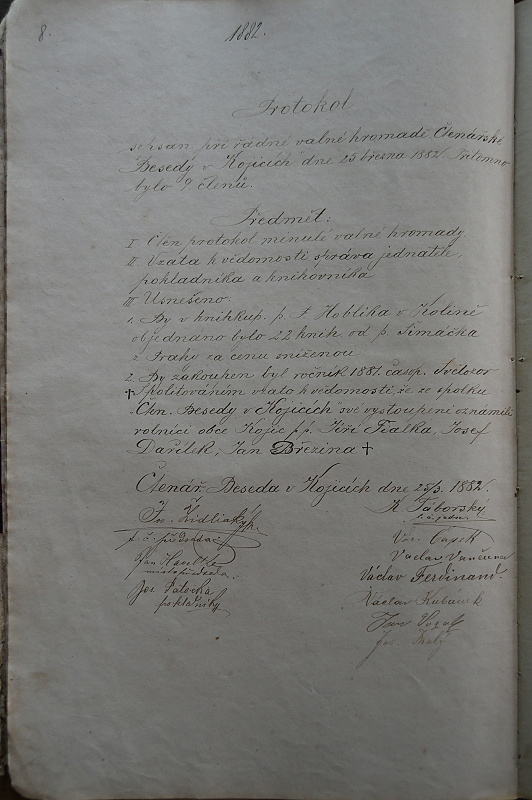 8.
1882.
Protokol
sepsán při řádné valné hromadě Čtenářské
Besedy v Kojicích dne 25 března 1882. Přítomno
bylo 9 členů.
Předmět:
I. Čten protokol minulé valné hromady
II. Vzata k vědomosti správa jednatele,
pokladníka a knihovníka
III. Usnešeno:
1. By v knihkup. p. F. Hoblíka v Kolíně
objednáno bylo 22 knih od p. Šimáčka
z Prahy za cenu sníženou
2. By zakoupen byl ročník 1881. časop. Světozor
† S politováním vzato k vědomosti, že ze spolku
„Čtn. Besedy v Kojicích" své vystoupení oznámili
rolníci obce Kojic p.p. Jiří Fialka, Josef
Dařílek, Jan Březina †
Čtenář. Beseda v Kojicích dne 25/3. 1882.
Fr. Židlický
K. Táborský
t. č. předseda
t. č. jedn.
Vác. Čapek
Jan
Václav Vančura
místopředseda
Václav Ferdinand.
Jos. Patočka
pokladník
Václav Kubánek
Jos.